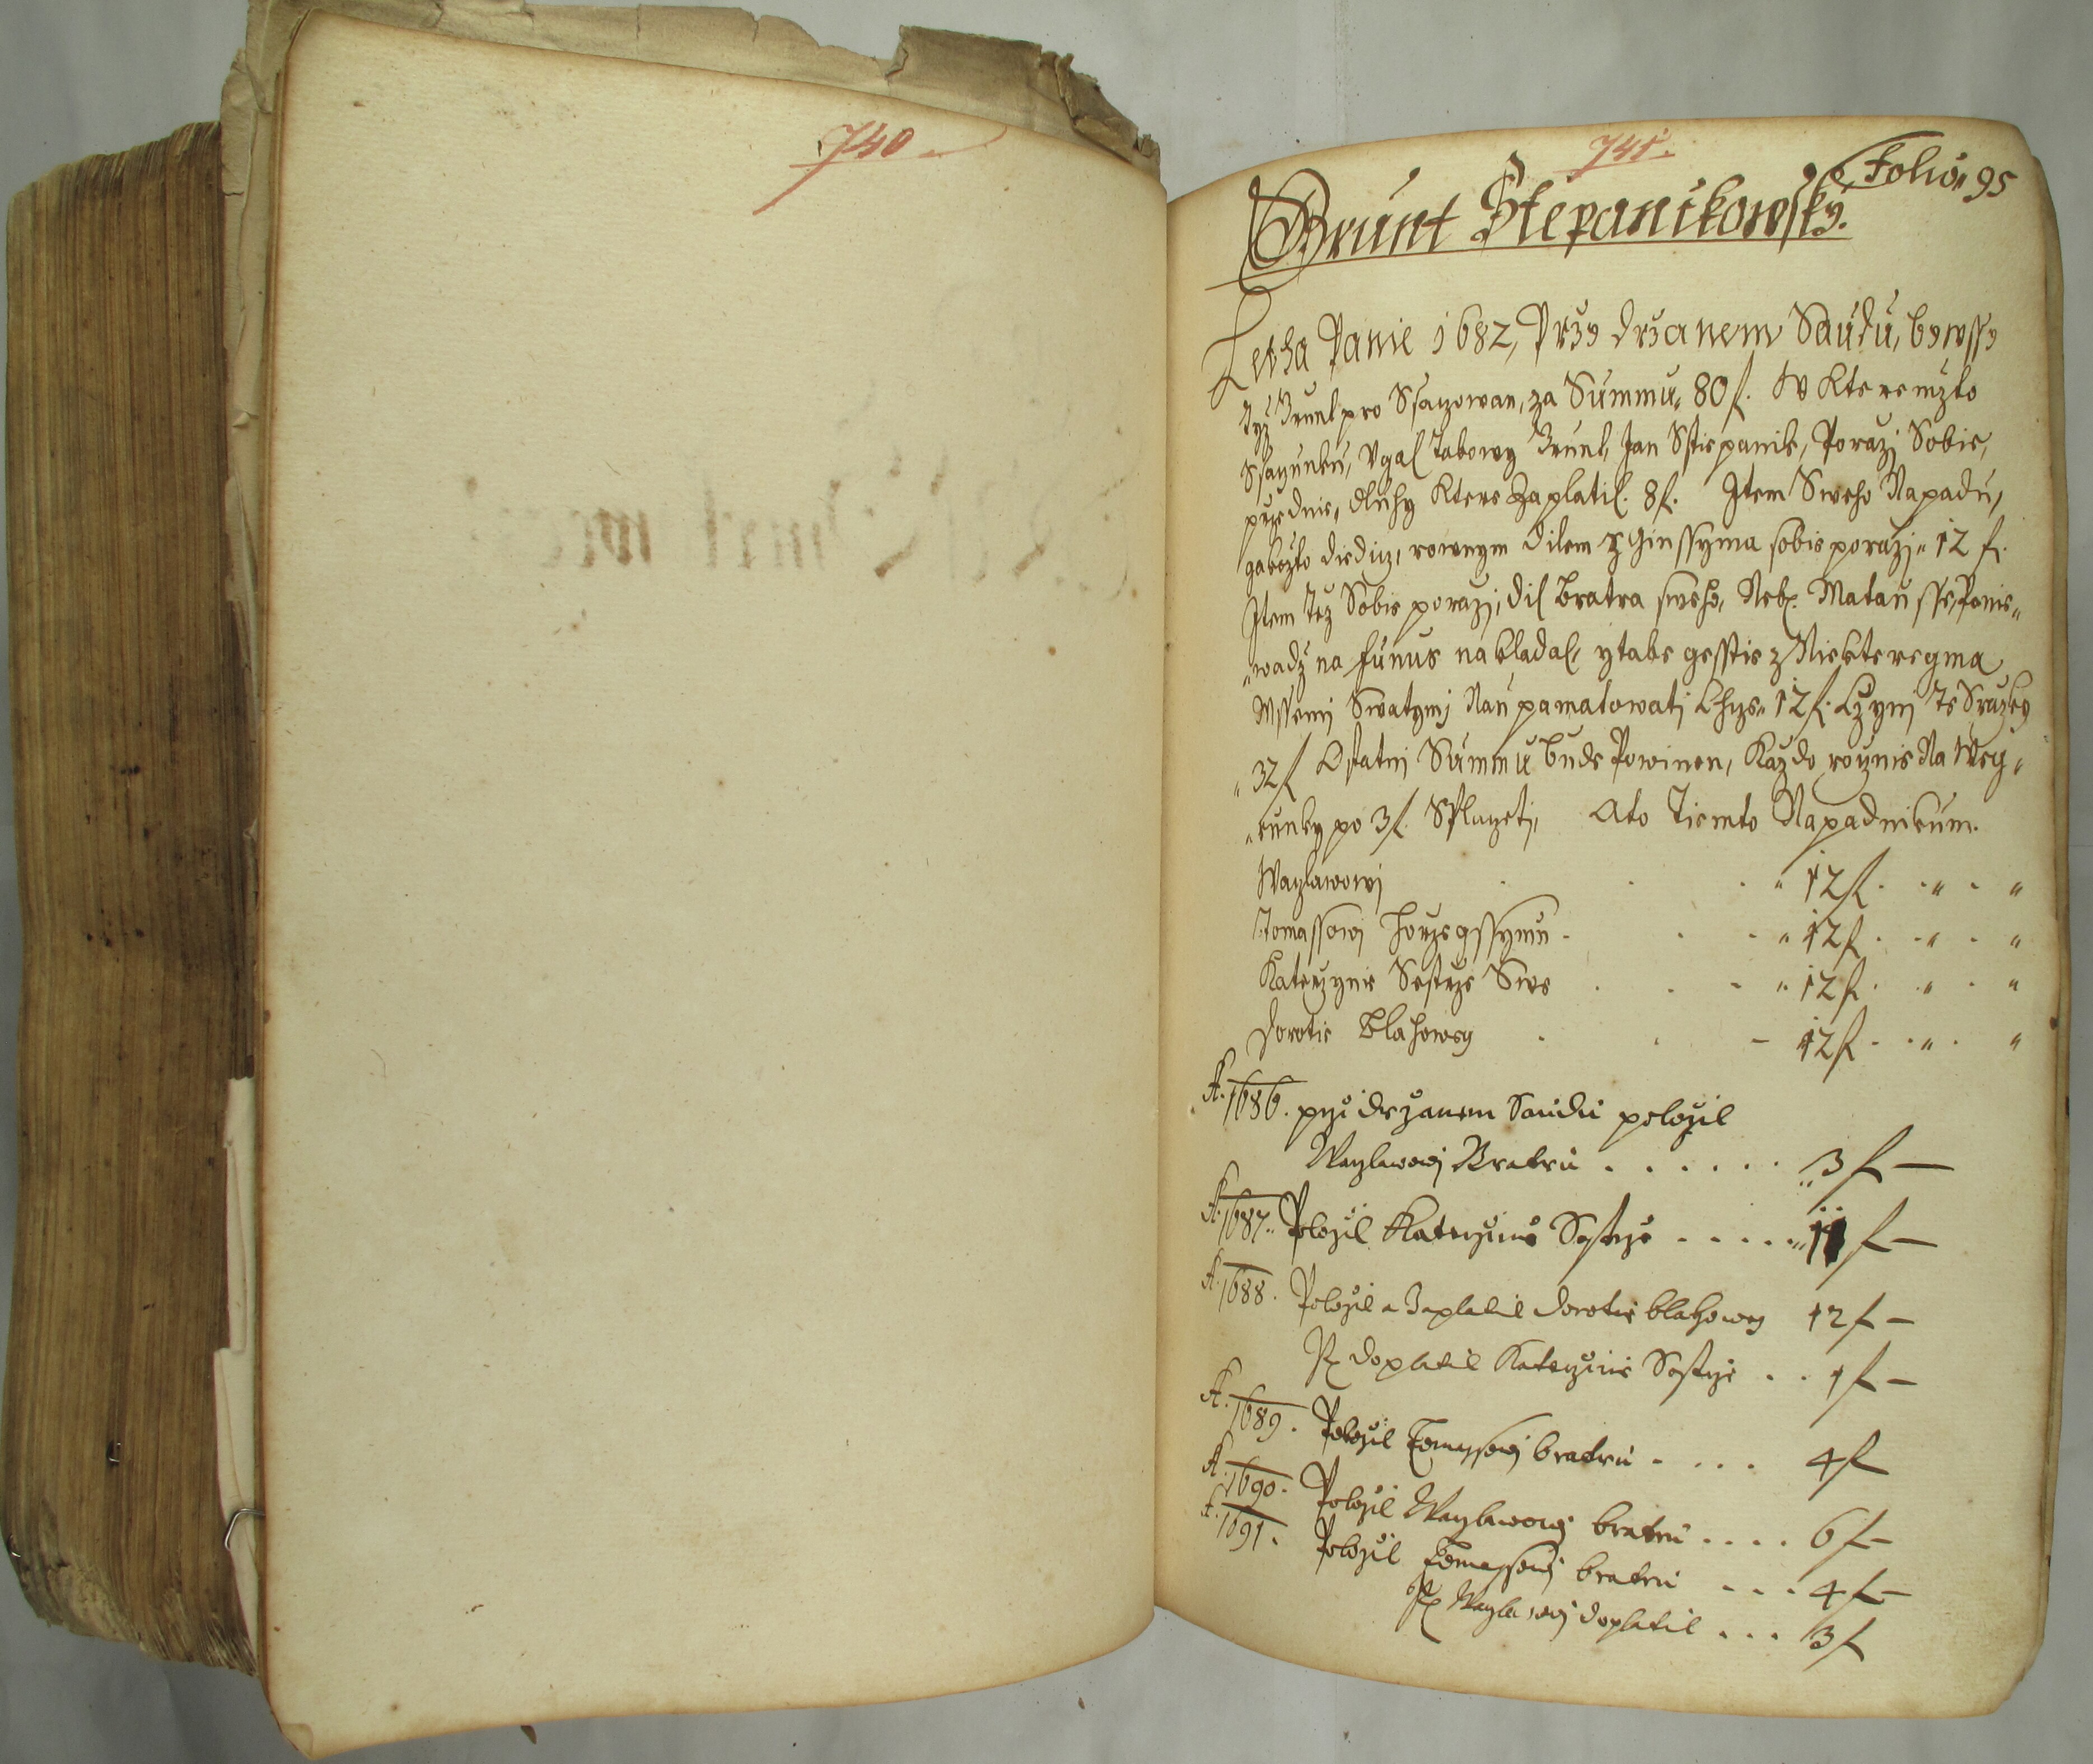 740
741.
Folio 95
Grunt Sstepanikowsky.
Letha Panie 1682, Przy drzanem Saudu, bywssy
tyz Grunt pro Ssaczowan, za Summu 80 f. W kteremzto
Ssaczunku, Ugal takowy Grunt, Jan Sstiepanik, Porazy Sobie,
przednie, dluhy ktere zaplatil. 8 f. Item Sweho Napadu,
gakozto diedicz, rownym dilem z ginssyma sobie porazy 12 f.
Item tez Sobie porazy, dil Bratra sweho, Neb. Matausse, Ponie„
„wadz na funus nakladal, y take gesstie z Niekteregma
Mssemj Swatymj Nan pamatowatj Chcze 12 f. Czynj te Srazky
„32 f Ostatnj Summu bude Powinen, Kazdorocznie Na Wey„
„runky po 3 f. Splaczetj, Ato Tiemto Napadnikum.
Waczlawowj 12 f.
Tomassowj horzegssymu 12 f.
Katerzynie Sestrze Swe 12 f.
Dorotie Blahowey 12 f.
A. 1686. przi drzanem Saudu polozil
Waczlawowj Bratru 3 f
A. 1687. Polozil Katerzinie Sestrze 11 f
A. 1688. Polozil a Zaplatil Dorotie blahowey 12 f
It. doplatil Katerzinie Sestrze 1 f
A. 1689. Polozil Tomassowj bratru 4 f
A. 1690. Polozil Waczlawowj bratru 6 f
A. 1691. Polozil Tomassowj bratru 4 f
It. Waczlawowj doplatil 3 f